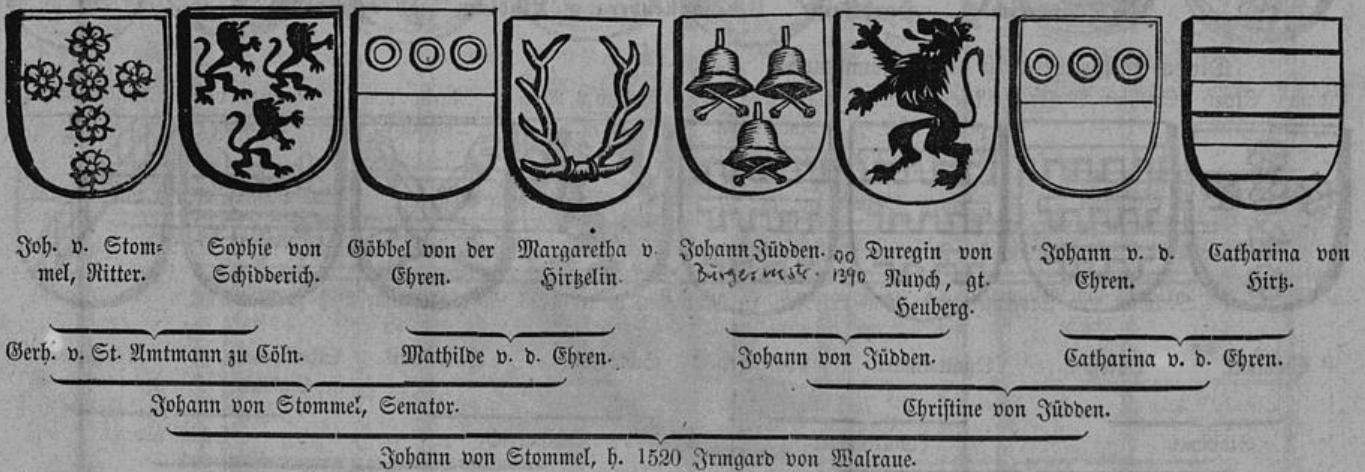 Joh. v. Stom=
mel, Ritter.
Sophie von
Schidderich.
Göbbel von der
Ehren.
Margaretha v.
Hirtzelin.
Johann Jüdden.
Bürgermstr.
∞
1390
Duregin von
Nuych, gt.
Heuberg.
Johann v. d.
Ehren.
Catharina von
Hirtz.
Gerh. v. St. Amtmann zu Cöln.
Mathilde v. d. Ehren.
Johann von Jüdden.
Catharina v. d. Ehren.
Johann von Stommel, Senator.
Christine von Jüdden.
Johann von Stommel, h. 1520 Irmgard von Walraue.